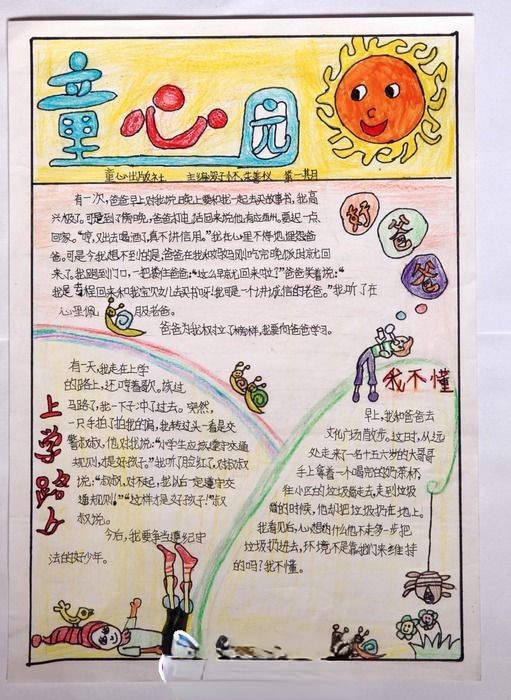 童心园
童心出版社 主编 第一期
好爸爸
有一次,爸爸早上对我说,晚上要和我一起去买故事书,我高
兴极了。可是到了傍晚,爸爸打电话回来说他有应酬,要迟一点
回家。“哼,又出去喝酒了,真不讲信用。”我在心里不停地埋怨爸
爸。可是令我想不到的是,爸爸在我和妈妈刚吃完晚饭时就回
来了。我跑到门口,一把搂住爸爸:“这么早就回来啦?”爸爸笑着说:“
我是专程回来和我宝贝女儿去买书呀!我可是一个讲诚信的老爸。”我听了在
心里佩服老爸。
爸爸为我树立了榜样,我要向爸爸学习。
上学路上
有一天,我走在上学
的路上,还哼着歌。该过
马路了,我一下子冲了过去。突然,
一只手拍了拍我的肩,我转过头一看是交
警叔叔,他对我说:“小学生应该遵守交通
规则,才是好孩子。”我听了脸红了,对叔叔
说:“叔叔,对不起,我以后一定遵守交
通规则!”“这样才是好孩子!”叔
叔说。
今后,我要争当遵纪守
法的好少年。
我不懂
早上,我和爸爸去
文化广场散步。这时,从远
处走来了一名十五六岁的大哥哥
手上拿着一个喝完的奶茶杯,
往小区的垃圾桶走去,走到垃圾
桶的时候,他却把垃圾扔在地上。
我看见后,心想:为什么他不走多一步把
垃圾扔进去,环境不是靠我们来维持
的吗?我不懂。